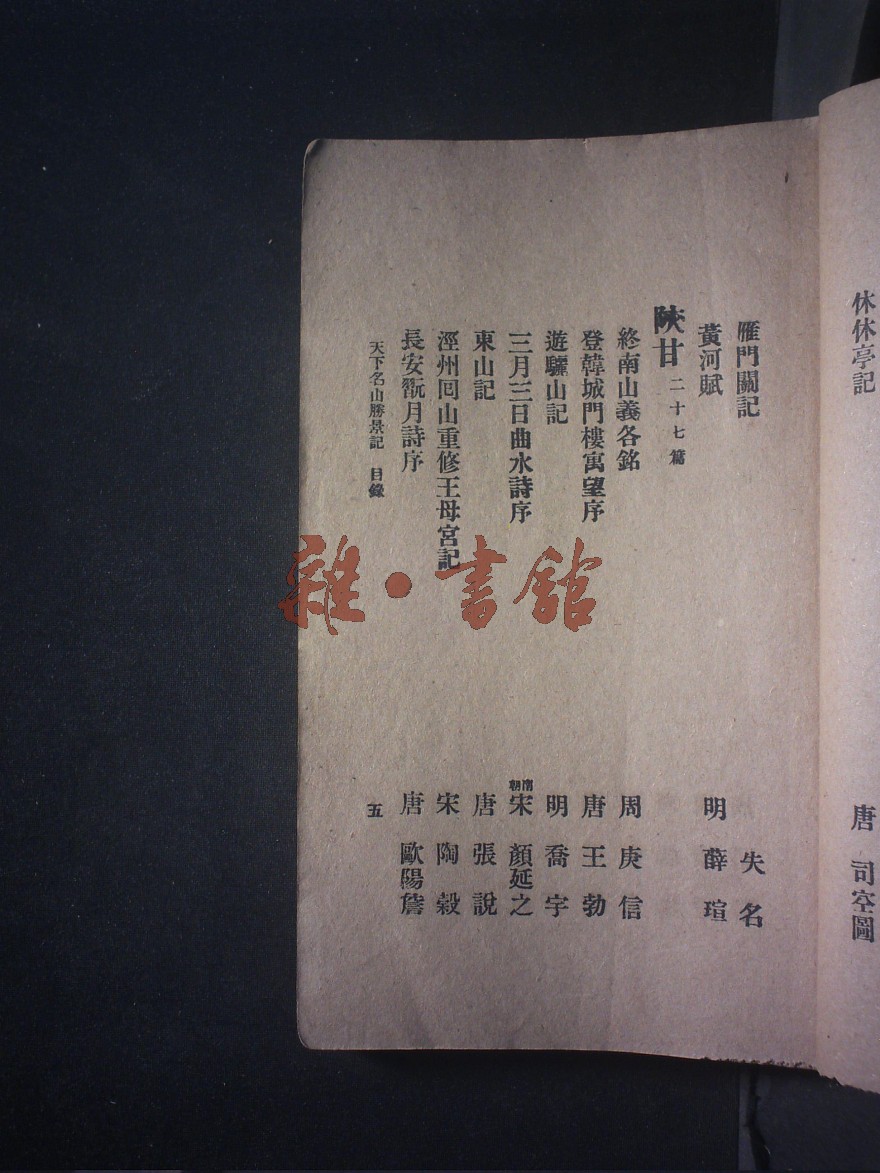 休休亭記 唐 司空圖
雁門關記 失名
黃河賦 明 薛瑄
陝甘 二十七篇
終南山義各銘 周 庾信
登韓城門樓寓望序 唐 王勃
遊驪山記 明 喬宇
三月三日曲水詩序 南朝宋 顏延之
東山記 唐 張說
涇州回山重修王母宮記 宋 陶穀
長安翫月詩序 唐 歐陽詹
天下名山勝景記 目錄 五
雜·書館